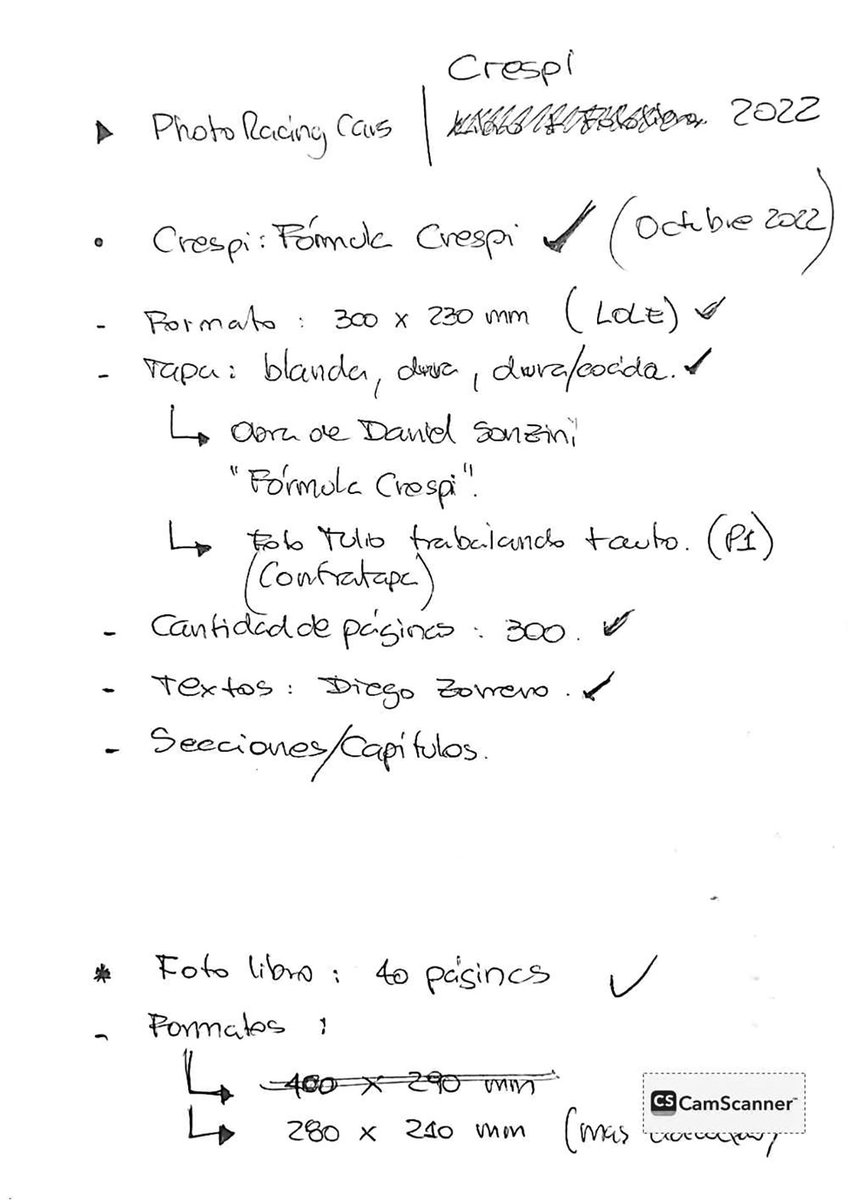 Crespi
▶ Photo Racing Cars | 2022
• Crespi: Fórmula Crespi ✓ (Octubre 2022)
- Formato: 300 x 230 mm (LOLE) ✓
- Tapa: blanda, dura, dura/cocida. ✓
↳ Obra de Daniel Sanzini
"Fórmula Crespi".
↳ Foto Tulio trabajando tauto. (P1)
(Contratapa)
- Cantidad de páginas: 300. ✓
- Textos: Diego Zorrero. ✓
- Secciones/Capítulos.
* Foto libro: 40 páginas ✓
- Formatos:
↳ 400 x 290 mm
↳ 280 x 210 mm (mas
CS CamScanner